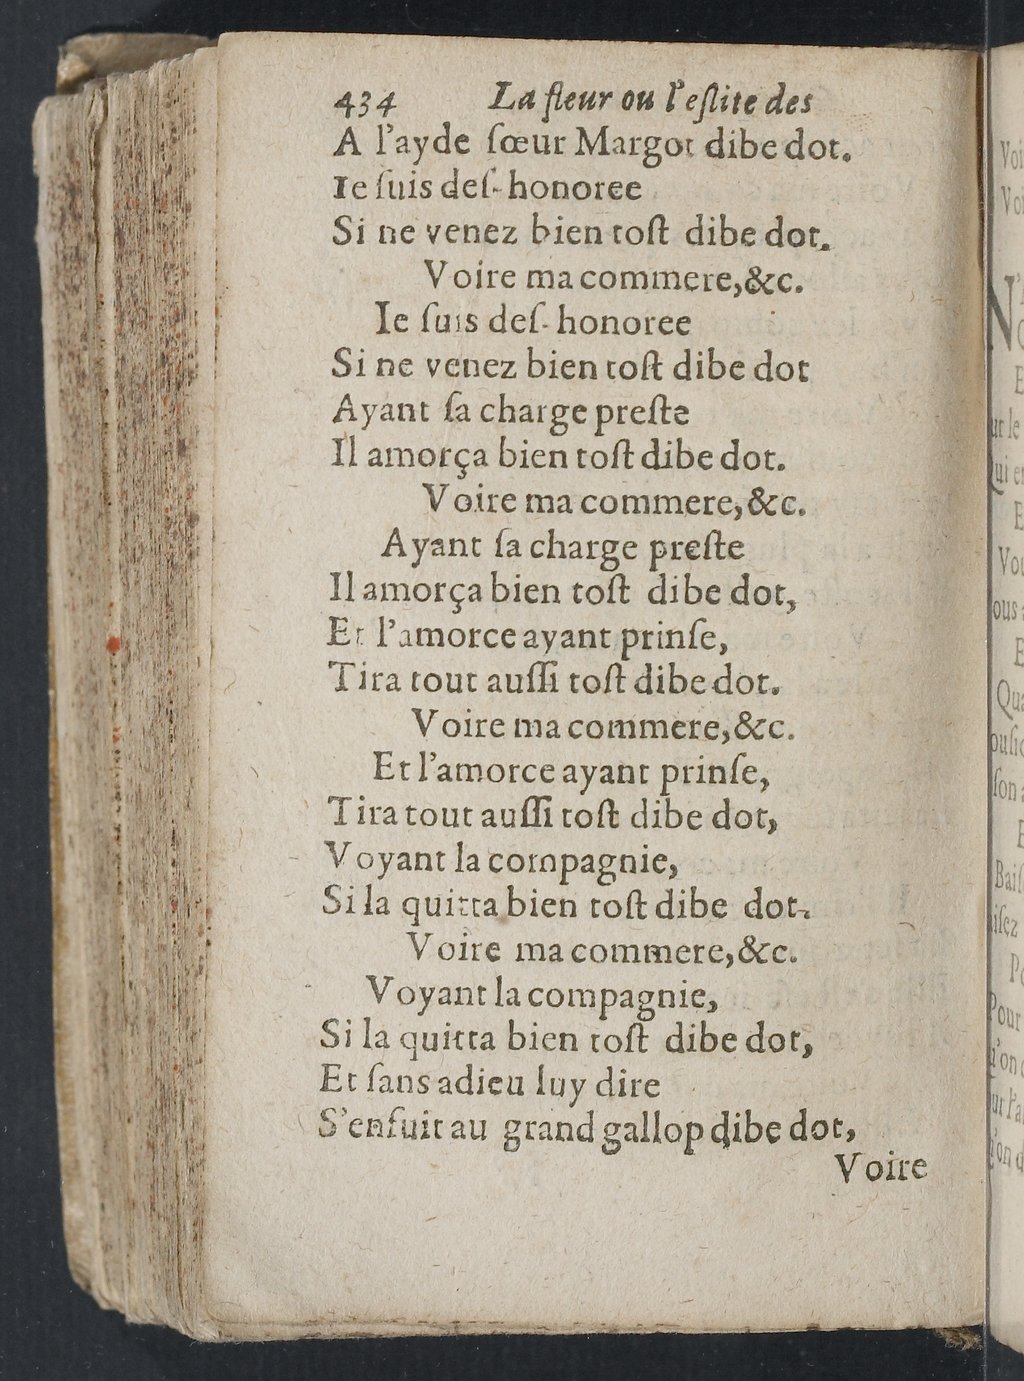 434 La fleur ou l'eſlite des
A l'ayde ſœur Margot dibe dot.
Ie ſuis deſ-honoree
Si ne venez bien toſt dibe dot.
Voire ma commere,&c.
Ie ſuis deſ-honoree
Si ne venez bien toſt dibe dot
Ayant ſa charge preſte
Il amorça bien toſt dibe dot.
Voire ma commere,&c.
Ayant ſa charge preſte
Il amorça bien toſt dibe dot,
Et l'amorce ayant prinſe,
Tira tout auſſi toſt dibe dot.
Voire ma commere,&c.
Et l'amorce ayant prinſe,
Tira tout auſſi toſt dibe dot,
Voyant la compagnie,
Si la quitta bien toſt dibe dot.
Voire ma commere,&c.
Voyant la compagnie,
Si la quitta bien toſt dibe dot,
Et ſans adieu luy dire
S'enfuit au grand gallop dibe dot,
Voire